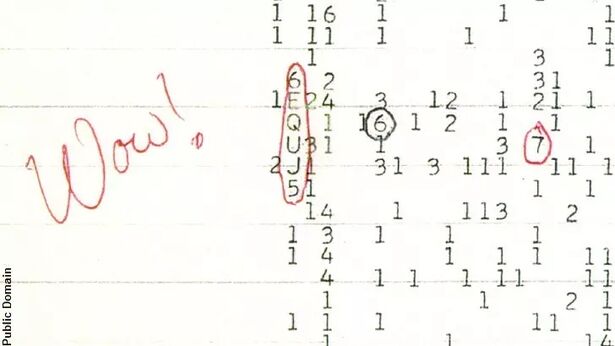 1 16 1 1 1
1 11 1 1 11
3 1
6 2 31
1 E 24 3 12 1 21 1
Q 1 16 1 2 1 1
U 31 1 3 7 1
2 J 1 31 3 111 11 1
5 1 1 1
14 1 113 2
1 3 1 1 1
1 4 1 1 1 11
4 1 1 1 11 11
1 1 2 1
1 1 1 1 11 1
1 1 14
Wow!
Public Domain